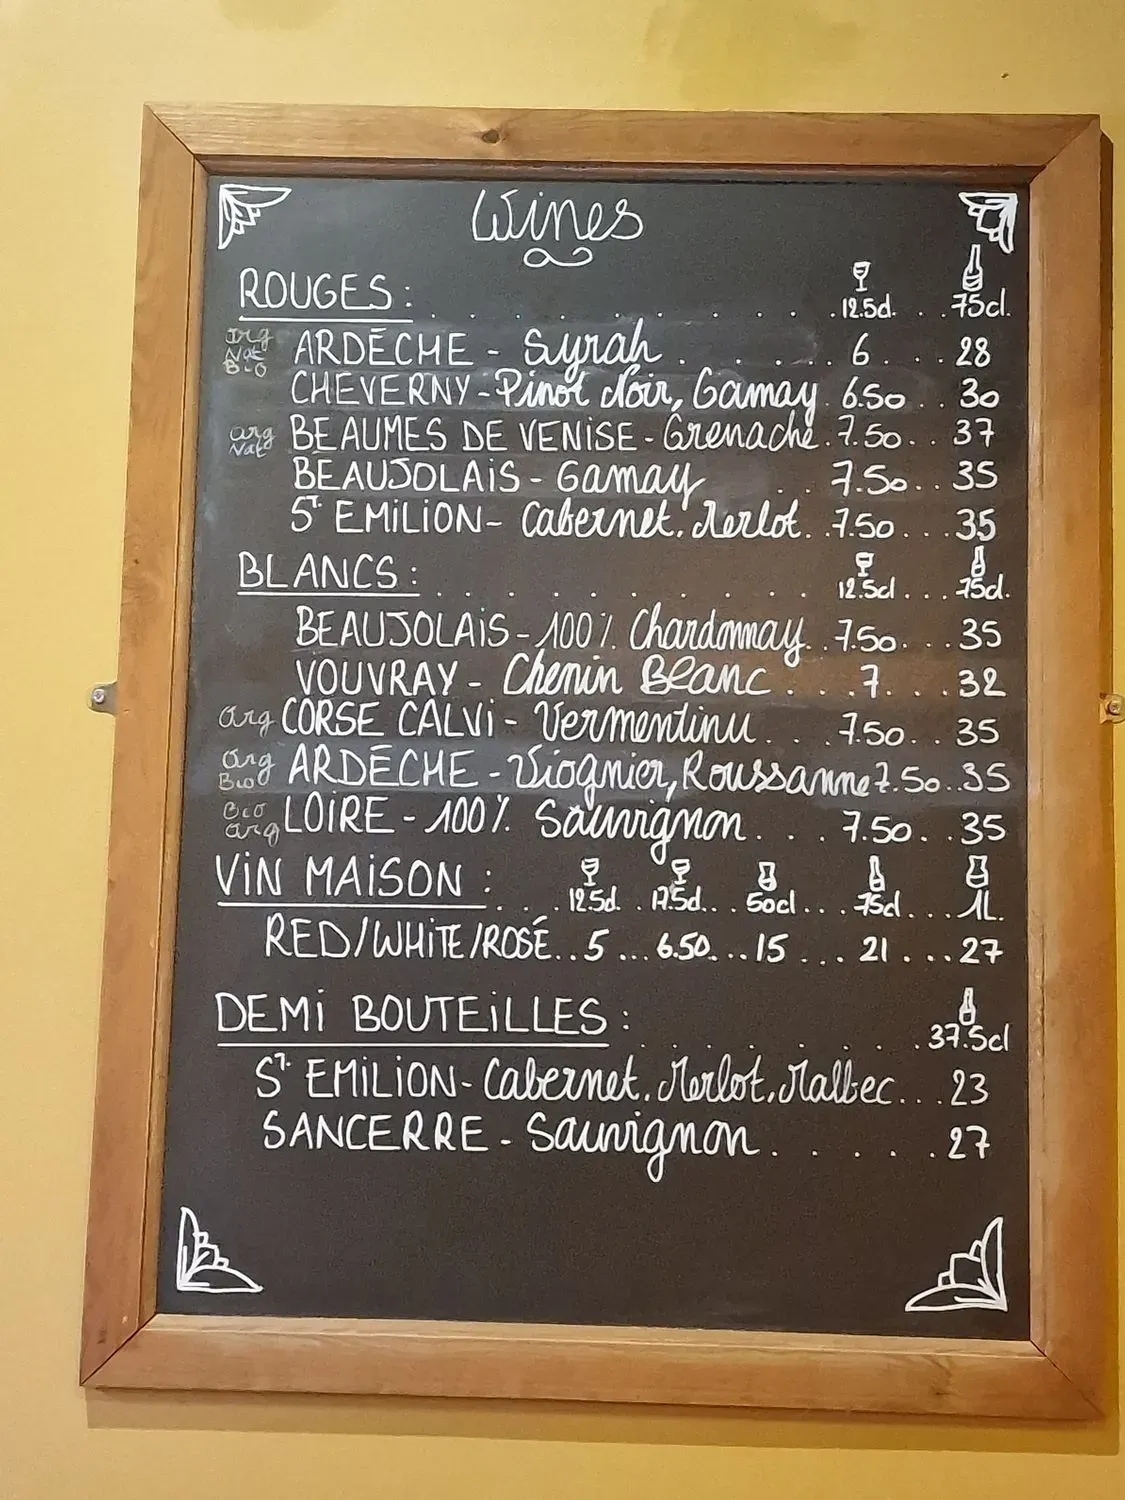 Wines
ROUGES: 12.5cl 75cl.
Org Nat Bio ARDÈCHE - Syrah 6 28
CHEVERNY - Pinot Noir, Gamay 6.50 30
Org Nat BEAUMES DE VENISE - Grenache 7.50 37
BEAUJOLAIS - Gamay 7.50 35
ST EMILION - Cabernet, Merlot 7.50 35
BLANCS: 12.5cl 75cl.
BEAUJOLAIS - 100% Chardonnay 7.50 35
VOUVRAY - Chenin Blanc 7 32
Org CORSE CALVI - Vermentinu 7.50 35
Org Bio ARDÈCHE - Viognier, Roussanne 7.50 35
Bio Org LOIRE - 100% Sauvignon 7.50 35
VIN MAISON: 12.5cl 17.5cl 50cl 75cl 1L.
RED/WHITE/ROSÉ 5 6.50 15 21 27
DEMI BOUTEILLES: 37.5cl
ST EMILION - Cabernet, Merlot, Malbec 23
SANCERRE - Sauvignon 27